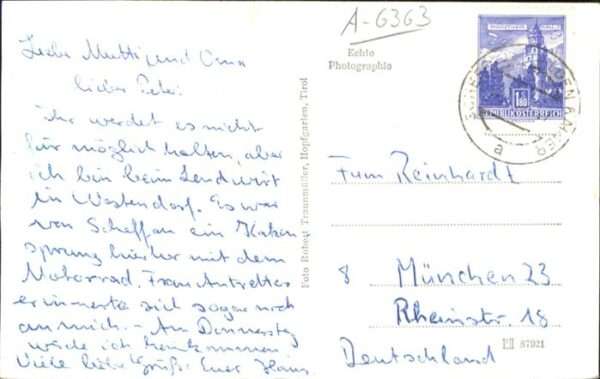 A-6363
Echte
Photographie
REPUBLIK ÖSTERREICH
1.80
a
Liebe Mutti, und Oma
lieber Peter
ihr werdet es nicht
für möglich halten, aber
ich bin beim Landwirt
in Westendorf. Es war
von Scheffau ein Katzen-
sprung hierher mit dem
Motorrad. Frau Antretter
erinnerte sich sogar noch
an mich. - Am Donnerstag
werde ich heimkommen
Viele liebe Grüße: Euer Hans
Foto Robert Traunmüller, Hopfgarten, Tirol
Fam Reinhardt
8 München 23
Rheinstr. 18
Deutschland
87921